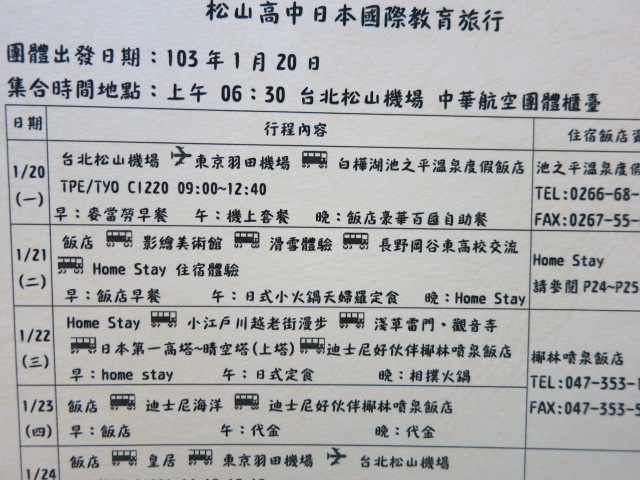 松山高中日本國際教育旅行
團體出發日期：103 年 1 月 20 日
集合時間地點：上午 06：30 台北松山機場 中華航空團體櫃臺
日期 行程內容 住宿飯店
1/20 台北松山機場 東京羽田機場 白樺湖池之平溫泉度假飯店 池之平溫泉度
(一) TPE/TYO CI220 09:00~12:40 TEL:0266-68-
早：麥當勞早餐 午：機上套餐 晚：飯店豪華百匯自助餐 FAX:0267-55-
1/21 飯店 影繪美術館 滑雪體驗 長野岡谷東高校交流
(二) Home Stay 住宿體驗 Home Stay
早：飯店早餐 午：日式小火鍋天婦羅定食 晚：Home Stay 請參閱 P24~P25
1/22 Home Stay 小江戶川越老街漫步 淺草雷門‧觀音寺
(三) 日本第一高塔~晴空塔(上塔) 迪士尼好伙伴椰林噴泉飯店 椰林噴泉飯店
早：home stay 午：日式定食 晚：相撲火鍋 TEL:047-353-
1/23 飯店 迪士尼海洋 迪士尼好伙伴椰林噴泉飯店 FAX:047-353-
(四) 早：飯店 午：代金 晚：代金
1/24 飯店 皇居 東京羽田機場 台北松山機場